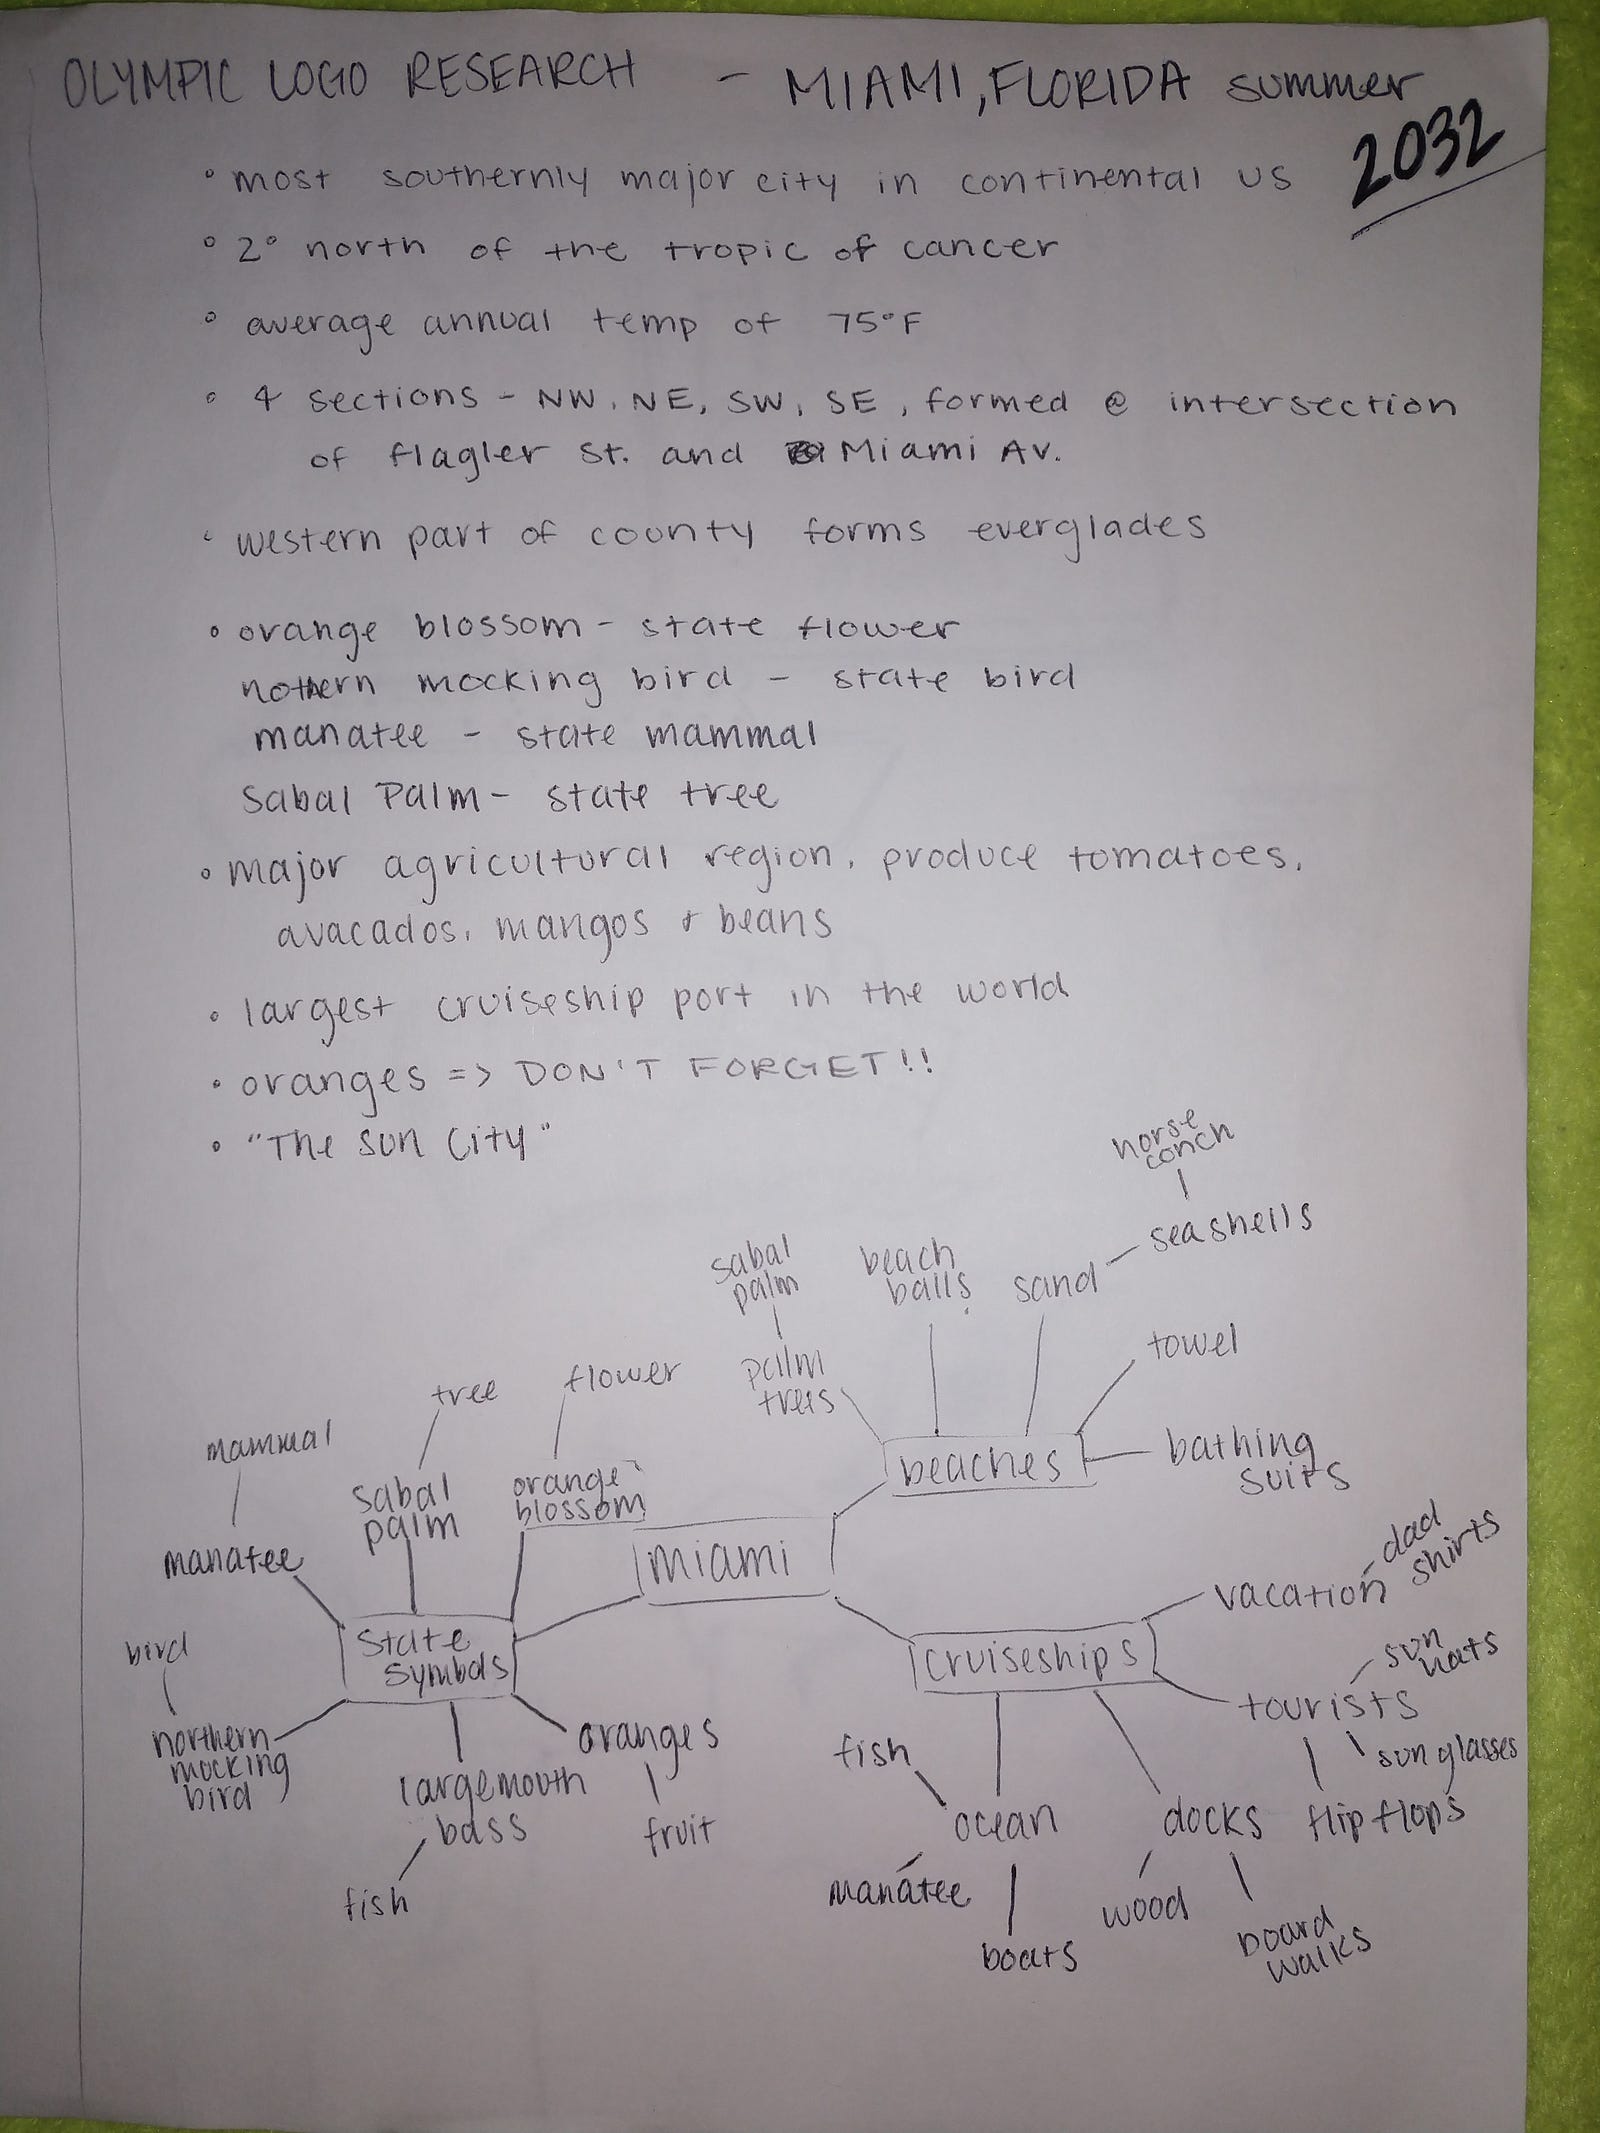 OLYMPIC LOGO RESEARCH - MIAMI, FLORIDA summer
2032
• most southernly major city in continental US
• 2° north of the tropic of cancer
• average annual temp of 75°F
• 4 sections - NW, NE, SW, SE, formed @ intersection
of flagler St. and Miami Av.
• western part of county forms everglades
• orange blossom - state flower
nothern mocking bird - state bird
manatee - state mammal
Sabal Palm - state tree
• major agricultural region, produce tomatoes,
avacados, mangos & beans
• largest cruiseship port in the world
• oranges => DON'T FORGET!!
• "The Sun City"
horse
conch
seashells
sabal
palm
beach
balls
sand
towel
palm
trees
flower
tree
mammal
beaches
bathing
suits
sabal
palm
orange
blossom
miami
manatee
dad
shirts
vacation
state
symbols
cruiseships
bird
sun
hats
tourists
northern
mocking
bird
oranges
fish
sunglasses
largemouth
bass
fruit
ocean
docks
flip flops
fish
manatee
wood
boats
board
walks